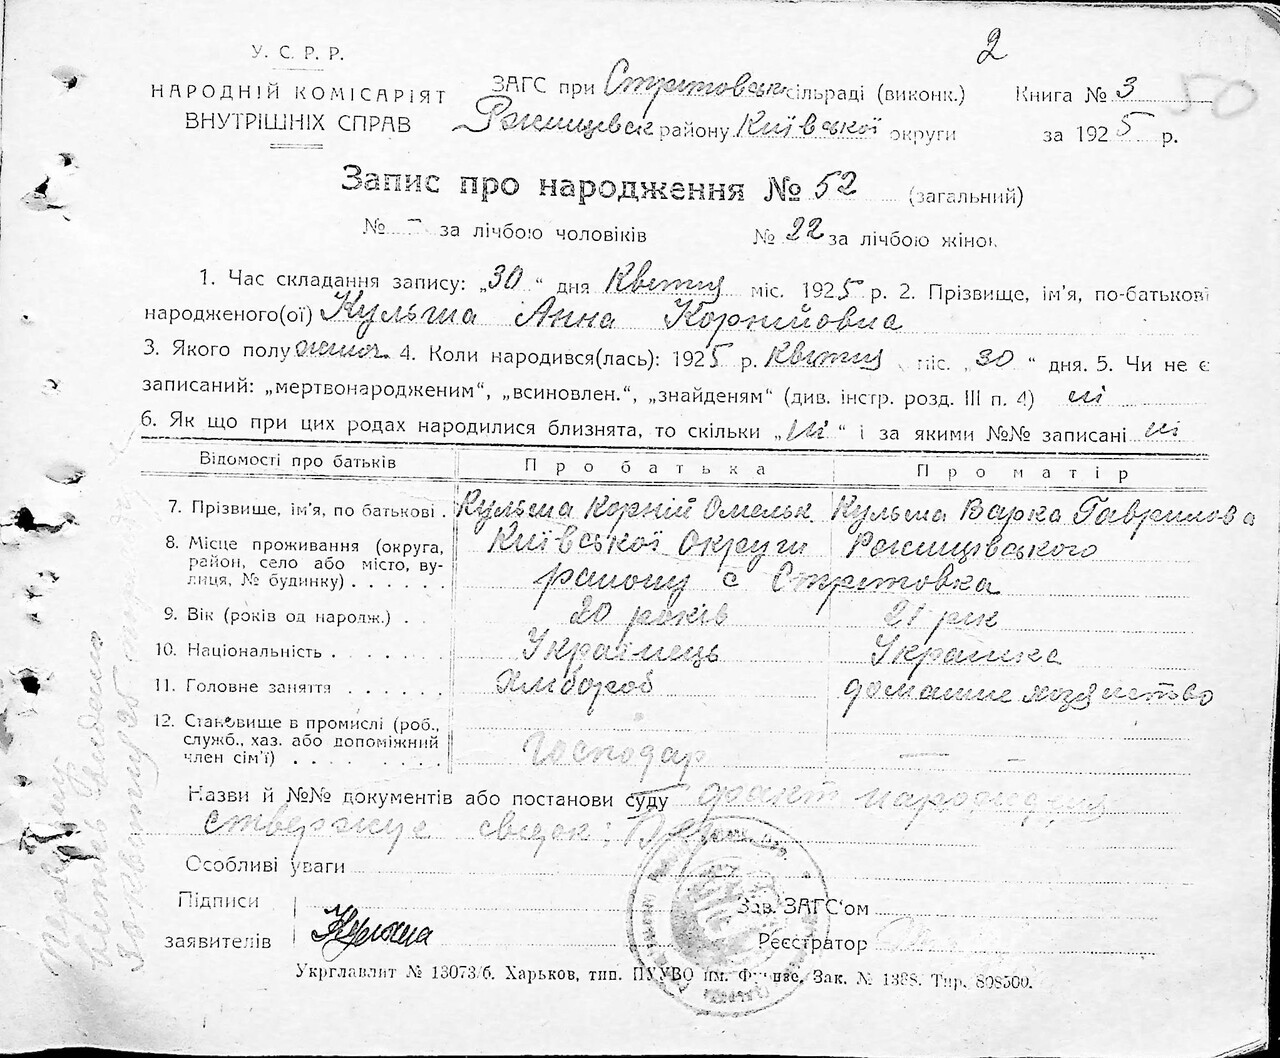 2
50
У. С. Р. Р.
НАРОДНІЙ КОМІСАРІЯТ
ВНУТРІШНІХ СПРАВ
ЗАГС при Стрітовськ сільраді (виконк.)
Ржищевск району Київської округи
Книга № 3
за 1925 р.
Запис про народження № 52 (загальний)
№ - за лічбою чоловіків № 22 за лічбою жінок
1. Час складання запису: „30 “ дня Квітня міс. 1925 р. 2. Прізвище, ім'я, по-батькові
народженого(ої) Кульша Анна Корнійовна
3. Якого полу жіноч. 4. Коли народився(лась): 1925 р. Квітня міс. „30 “ дня. 5. Чи не є
записаний: „мертвонародженим“, „всиновлен.“, „знайденям“ (див. інстр. розд. III п. 4) ні
6. Як що при цих родах народилися близнята, то скільки „ні “ і за якими №№ записані ні
Відомості про батьків Про батька Про матір
7. Прізвище, ім'я, по батькові . Кульша Корній Омельк Кульша Варка Гаврилова
8. Місце проживання (округа, район, село або місто, вулиця, № будинку) . . . . . Київської Округи Ржищівського
району с Стрітовка
9. Вік (років од народж.) . . 20 років 21 рік
10. Національність . . . . . . . Українець Українка
11. Головне заняття . . . . . . Хлібороб домашнє хозяйство
12. Становище в промислі (роб., служб., хаз. або допоміжний член сім'ї) . . . . . . . . Господар — -
Назви й №№ документів або постанови суду факт народження
ствержує свідок:
Особливі уваги
Підписи
заявителів Кульша
Зав. ЗАГС'ом
Реєстратор
Укрглавлит № 13073/б. Харьков, тип. ПУУВО им. Фрунзе, Зак. № 1388. Тир. 898500.